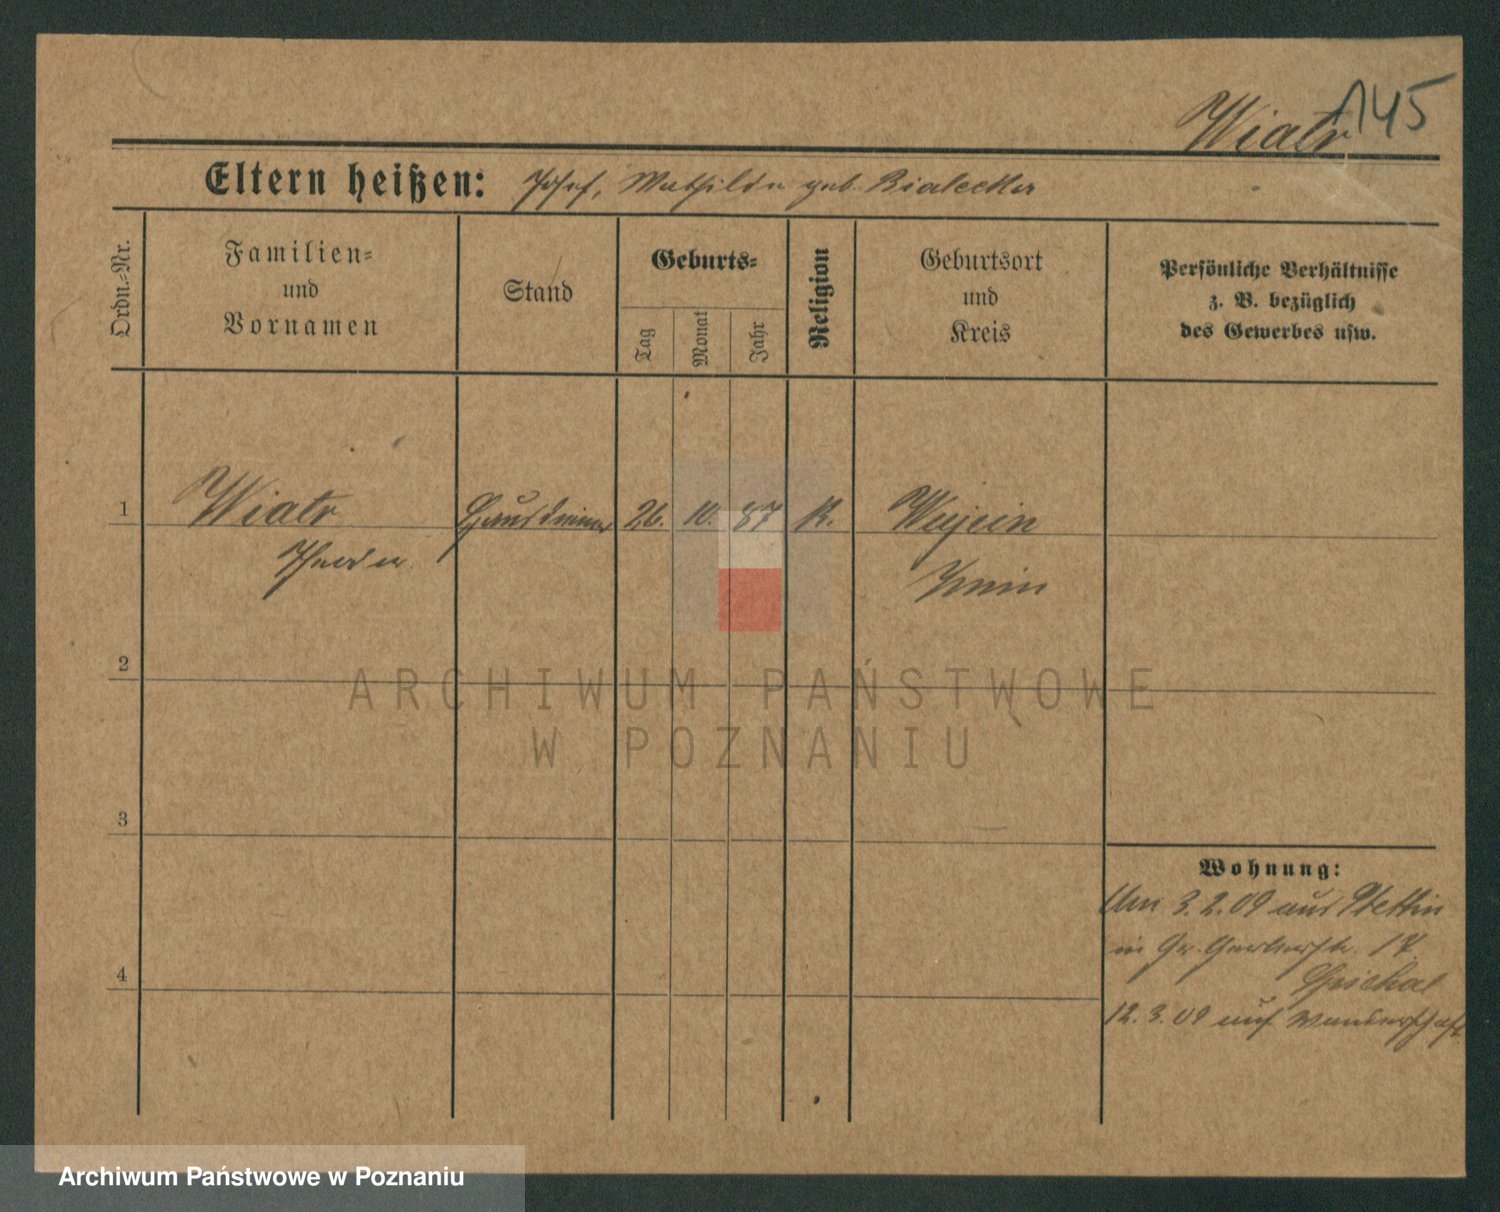 145
Wiatr
Eltern heißen: Josef, Mathilde geb. Bialecka
Ordn.-Nr.
Familien-
und
Vornamen
Stand
Geburts-
Tag
Monat
Jahr
Religion
Geburtsort
und
Kreis
Persönliche Verhältnisse
z. B. bezüglich
des Gewerbes usw.
1 Wiatr Hausdiener 26. 10. 87 K.
Znin
2
ARCHIWUM PAŃSTWOWE
W POZNANIU
3
Wohnung:
Um 3.2.09 aus Stettin
in Gr. Gerberstr. 17
4
12.3.09 auf Wanderschaft
Archiwum Państwowe w Poznaniu